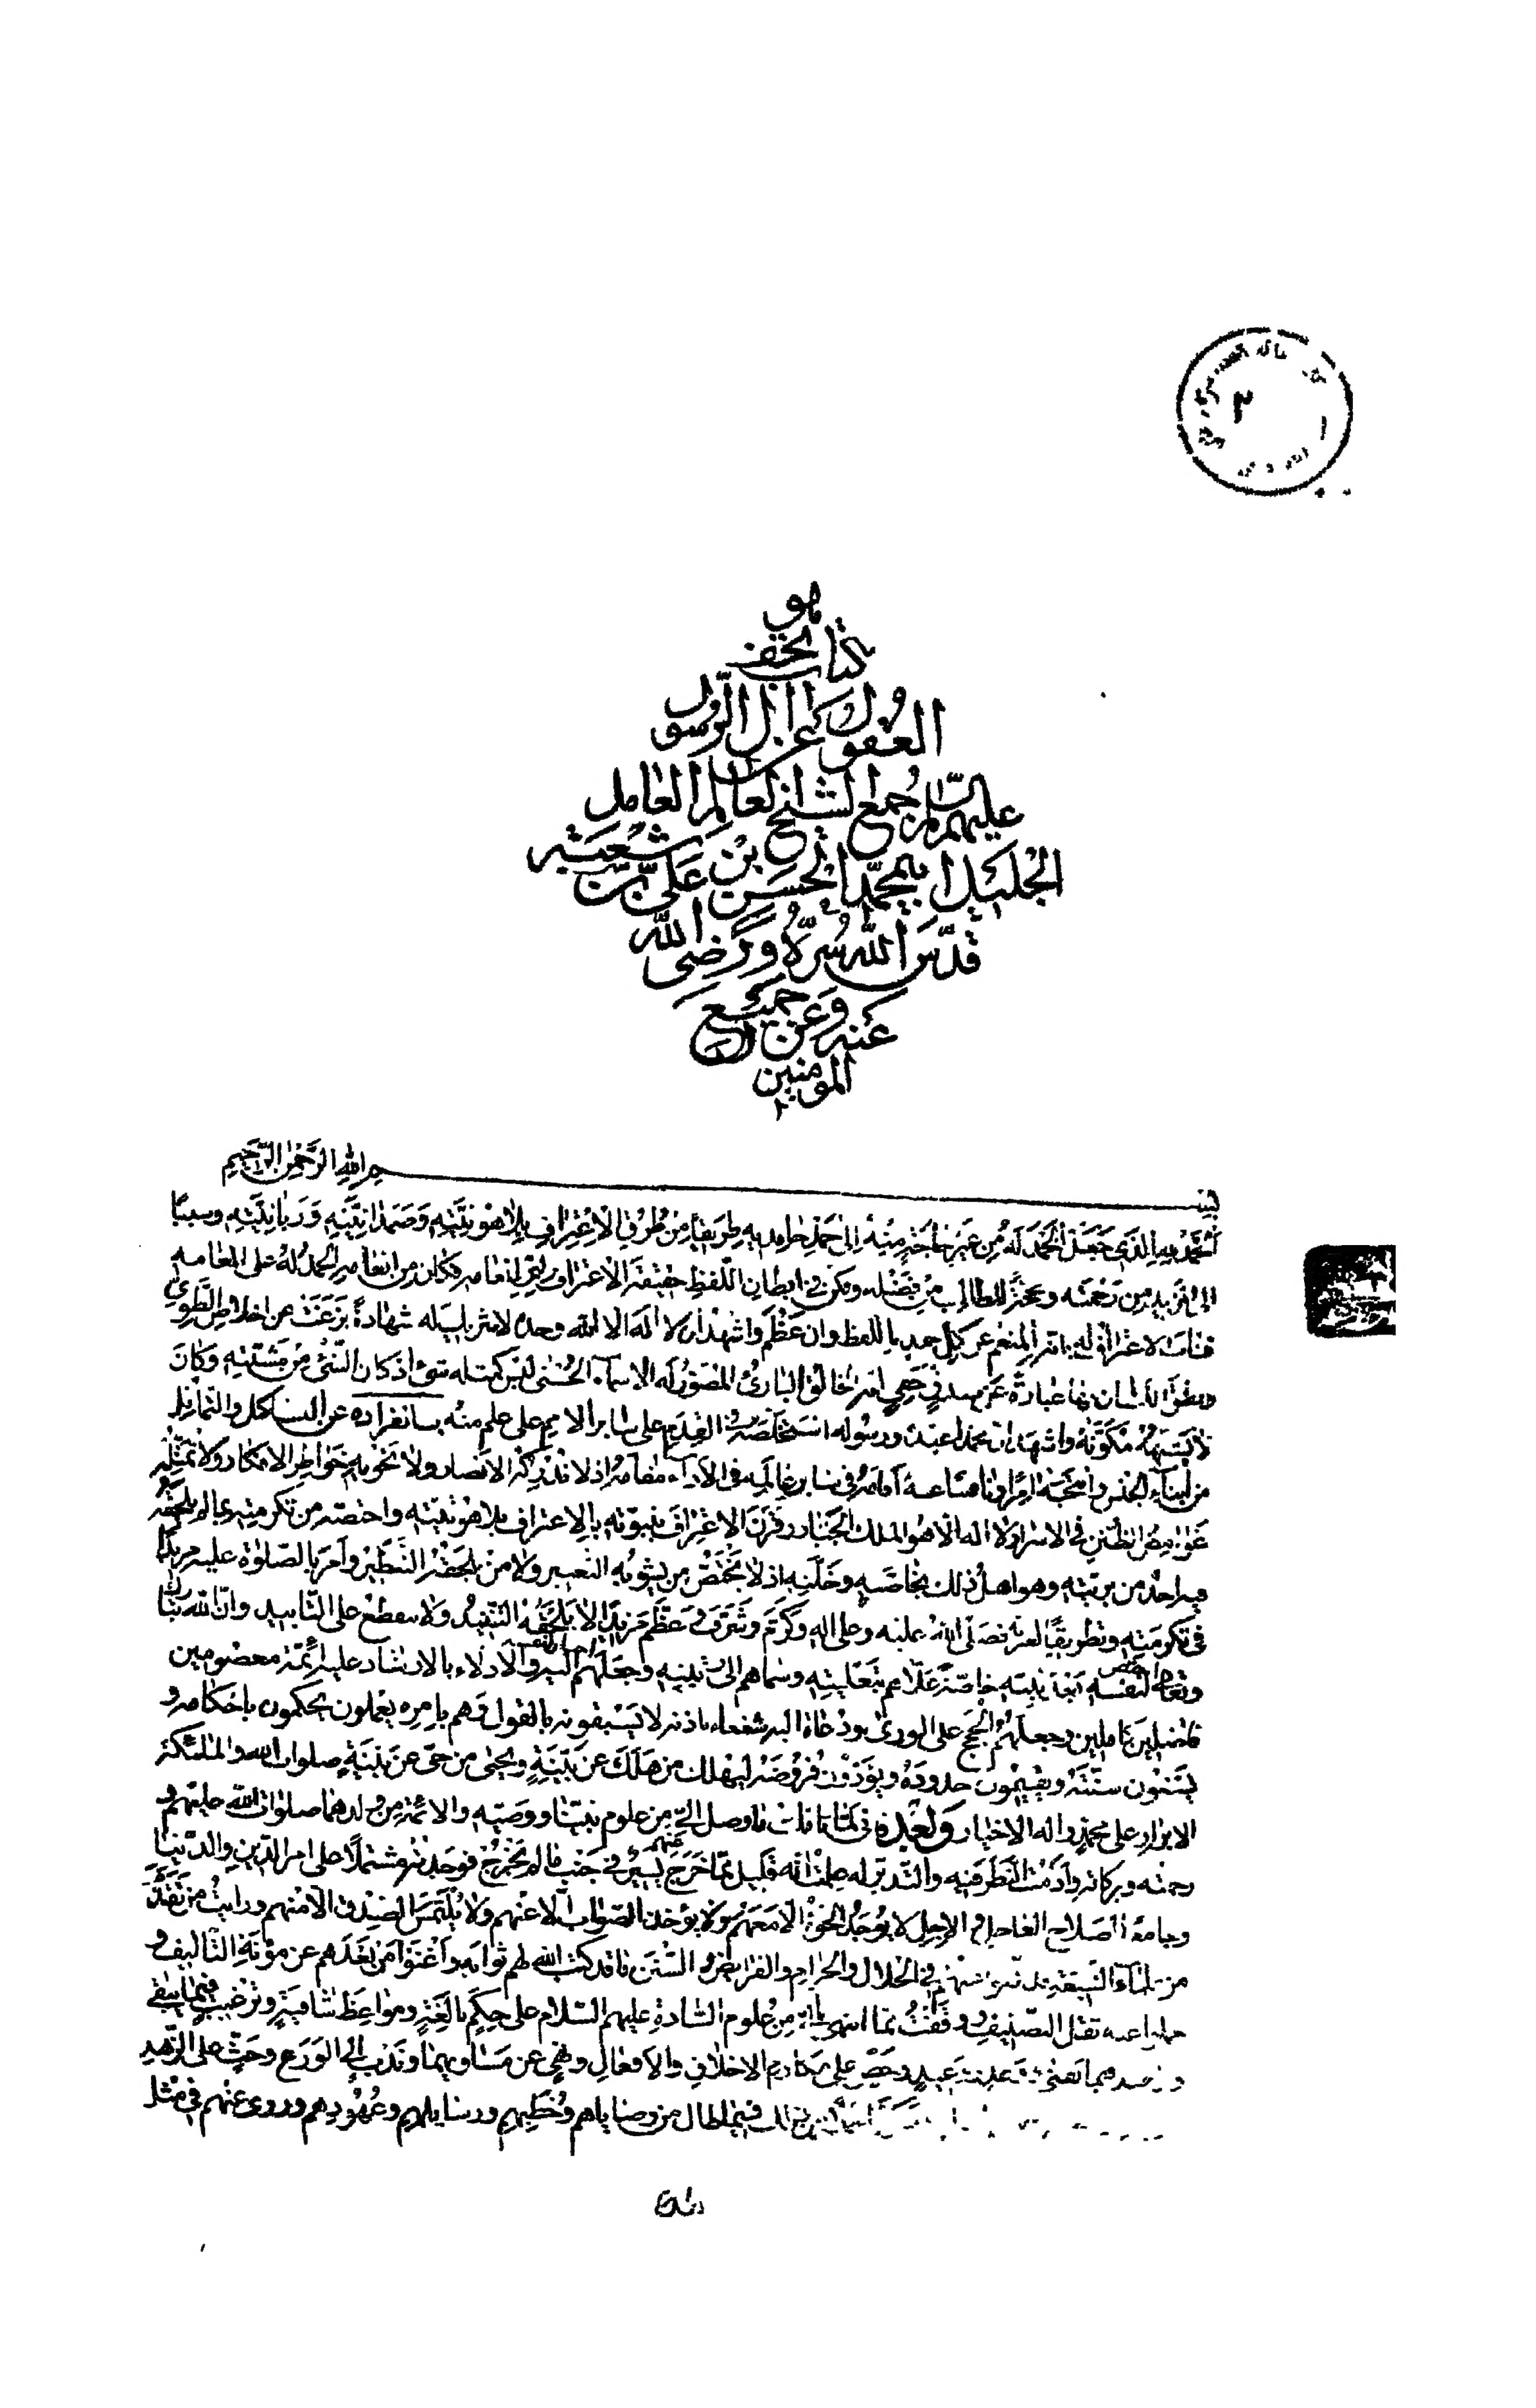 هو
كتاب تحف
العقول عن آل الرسول
عليهم السلام جمع الشيخ العالم العامل
الجليل ابي محمد الحسن بن علي بن شعبة
قدس الله سره ورضي الله
عنه وعن جميع
المؤمنين
بسم الله الرحمن الرحيم
الحمد لله الذي جعل الحمد له من غير حاجة منه إلى حامديه طريقا من طرق الاعتراف بلاهوتيته وصمدانيته وربانيته وسببا
إلى المزيد من رحمته ومحجة للطالب من فضله ومكن في ابطان اللفظ حقيقة الاعتراف لبر انعامه فكان من انعامه الحمد له على انعامه
فنابت الاعتراف له بانه المنعم عن كل حمد باللفظ وان عظم واشهد ان لا اله الا الله وحده لا شريك له شهادة بزغت عن اخلاص الطوي
ونطق اللسان بها عبارة عن صدق خفي انه الخالق البارئ المصور له الاسماء الحسنى ليس كمثله شئ اذ كان الشئ من مشيته وكان
لا يشبهه مكونه واشهد ان محمدا عبده ورسوله استخلصه في القدم على سائر الامم على علم منه بانفراده عن التشاكل والتماثل
من ابناء الجنس وانتجبه آمرا وناهيا عنه اقامه في سائر عالمه في الاداء مقامه اذ لا تدركه الابصار ولا تحويه خواطر الافكار ولا تمثله
غوامض الظنن في الاسرار لا اله الا هو الملك الجبار وقرن الاعتراف بنبوته بالاعتراف بلاهوتيته واختصه من تكرمته بما لم يلحقه
فيه احد من بريته وهو اهل ذلك بخاصته وخلته اذ لا يختص من يشوبه التغيير ولا من يلحقه التنظير وامر بالصلوة عليه مزيدا
في تكرمته وتطريقا لعترته فصلى الله عليه وعلى اله وكرم وشرف وعظم مزيدا لا يلحقه التنفيد ولا ينقطع على التأبيد وان الله تبارك
وتعالى اختص لنفسه بعد نبيه خاصة علاهم بتعليته وسما بهم الى رتبته وجعلهم اليه والادلاء بالارشاد عليه ائمة معصومين
فاضلين كاملين وجعلهم الحجج على الورى ودعاة اليه شفعاء باذنه لا يسبقونه بالقول وهم بامره يعملون يحكمون باحكامه و
يستنون سنته ويقيمون حدوده ويؤدون فروضه ليهلك من هلك عن بينة ويحيى من حي عن بينة صلوات الله والملائكة
الابرار على محمد واله الاخيار وبعد فاني لما تاملت ما وصل الي من علوم نبينا ووصيه والائمة من ولدهما صلوات الله عليهم و
رحمته وبركاته وادمت النظر فيه والتدبر له علمت انه قليل مما خرج عنهم يسير في جنب ما لم يخرج فوجدته مشتملا على امر الدين والدنيا
وجامعا لصلاح العاجل و الاجل لا يوجد الحق الا معهم ولا يؤخذ الصواب الا عنهم ولا يلتمس الصدق الا منهم ورايت من تقدم
من علماء الشيعة قد في الحلال والحرام والفرائض و السنن ما قد كتب الله لهم ثوابه واغنوا من بعدهم عن مؤنة التاليف و
حملوا عنه ثقل التصنيف ووقفت مما انتهى الي من علوم السادة عليهم السلام على حكم بالغة ومواعظ شافية وترغيب فيما يبقى
وتزهيد فيما يفنى ووعد ووعيد وحض على مكارم الاخلاق والافعال ونهي عن مساويهما وندب الى الورع وحث على الزهد
فيما طال من وصاياهم وخطبهم ورسايلهم وعهودهم وروى عنهم في مثل